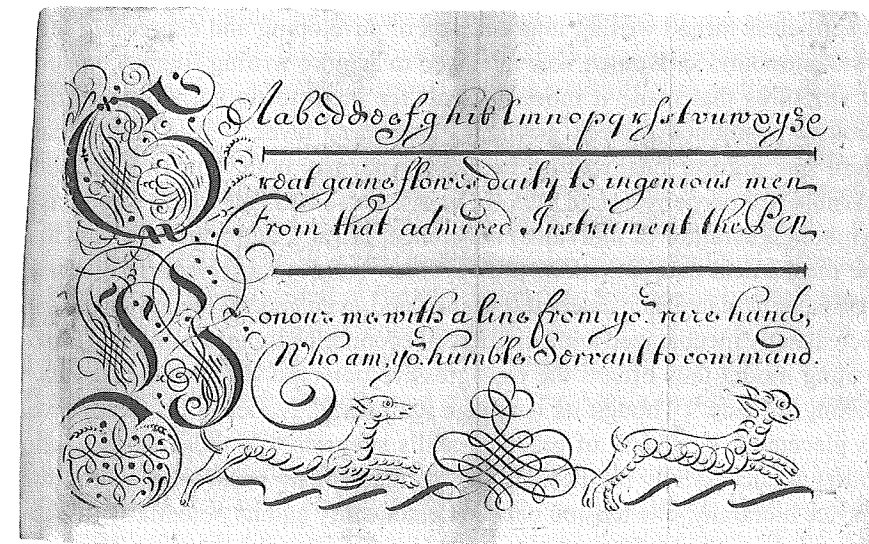 Aabcddeefghiklmnopqrsstvuwxyze
Great gaine flowes daily to ingenious men
From that admired Instrument the Pen.
Honour me with a line from yor. rare hand,
Who am, yor. humble Servant to command.